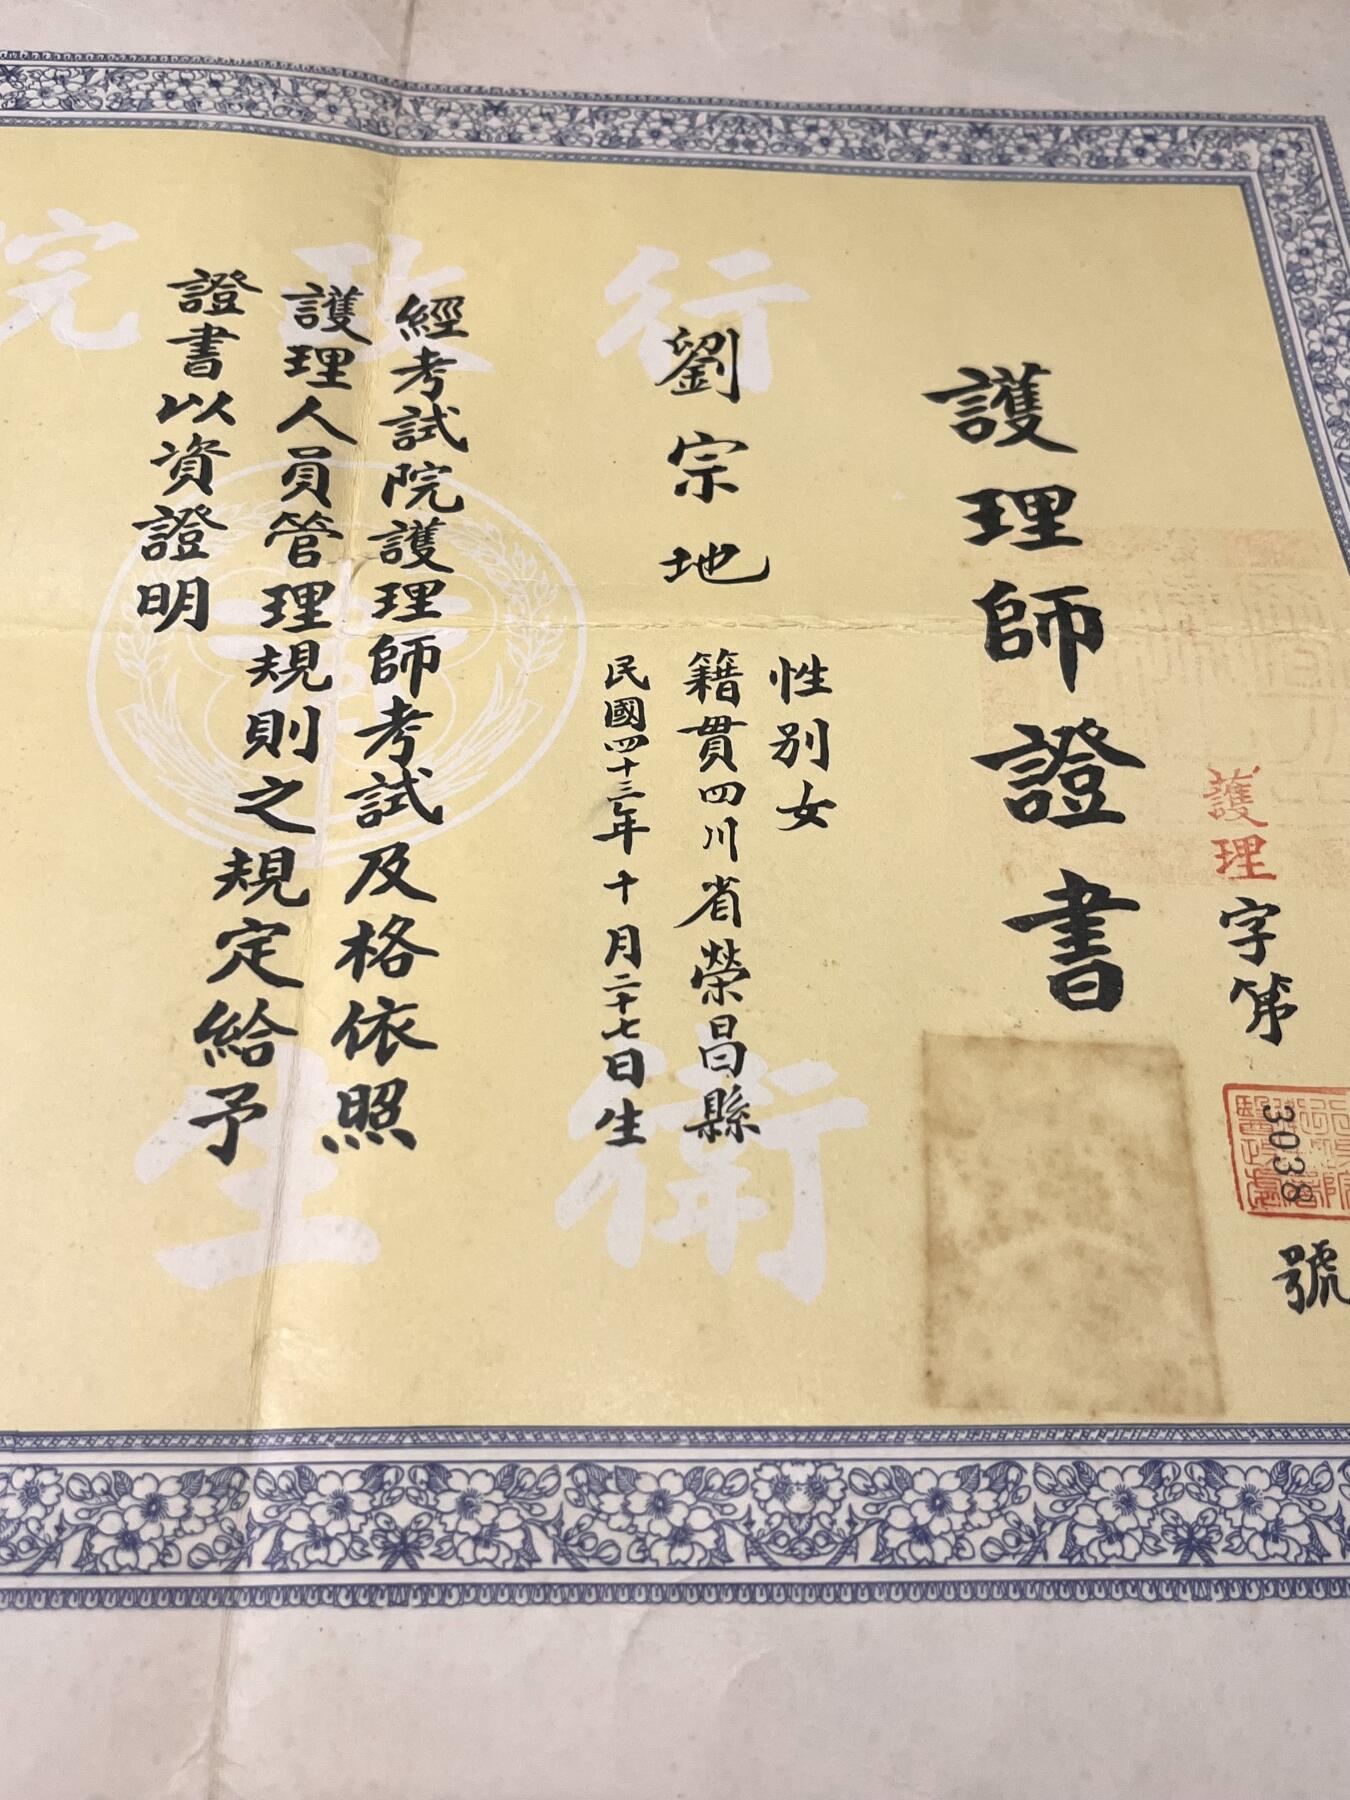 護理字第3038號
護理師證書
劉宗地
性別女
籍貫四川省榮昌縣
民國四十三年十月二十七日生
經考試院護理師考試及格依照
護理人員管理規則之規定給予
證書以資證明
行政院
衛生